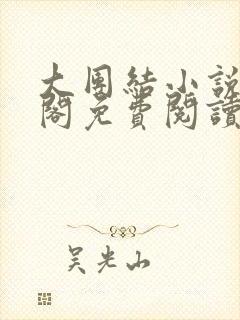 大團結小說
閣免費閱讀
吳光山